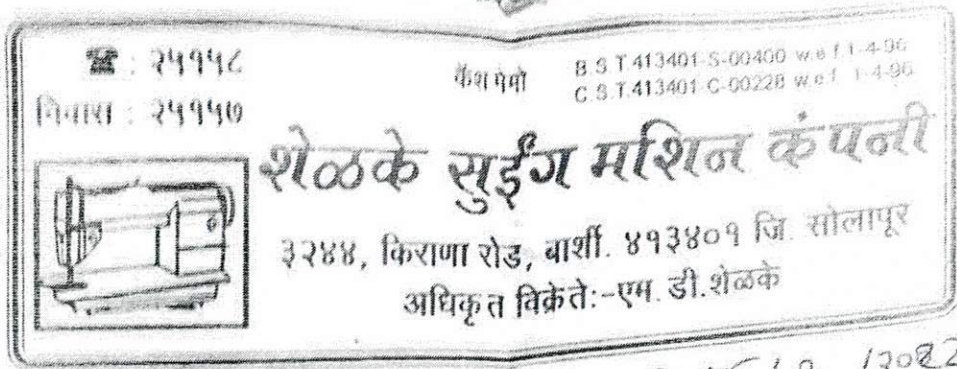 ☎ : २५१५८
निवास : २५१५७
कॅश मेमो
B.S.T.413401-S-00400 w.e.f.1-4-96
C.S.T.413401-C-00228 w.e.f. 1-4-96
शेळके सुईंग मशिन कंपनी
३२४४, किराणा रोड, बार्शी. ४१३४०१ जि. सोलापूर
अधिकृत विक्रेते:-एम. डी.शेळके